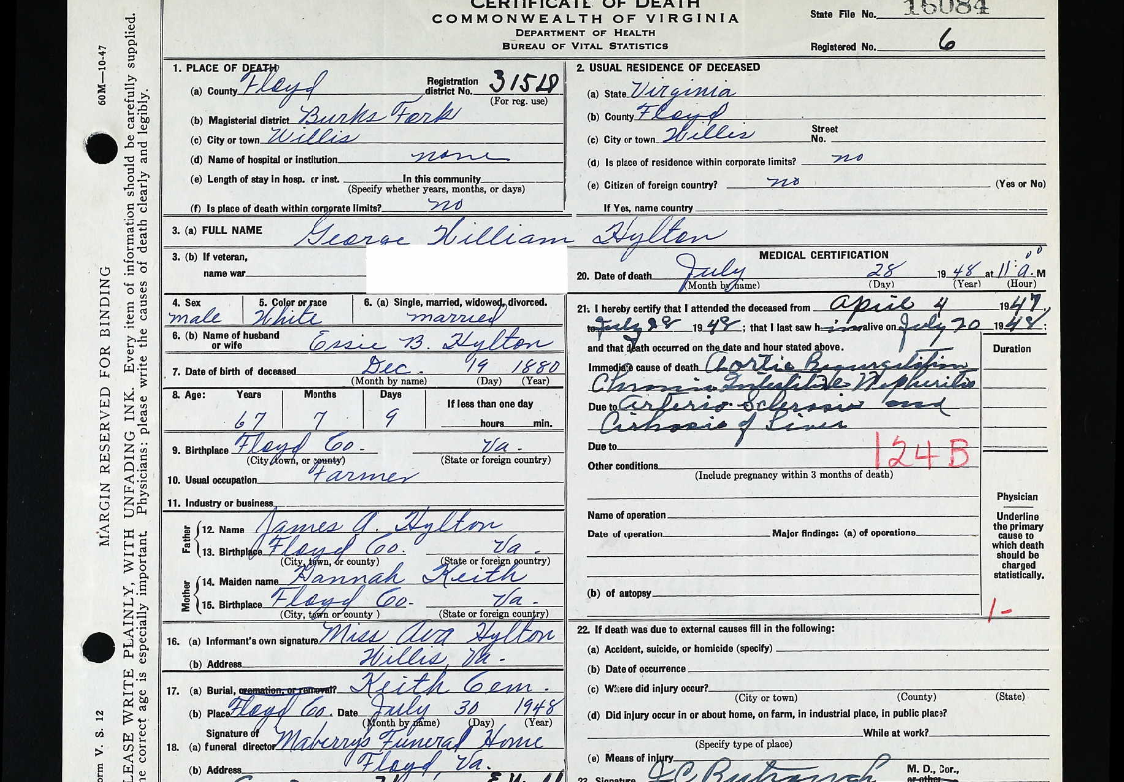 CERTIFICATE OF DEATH
COMMONWEALTH OF VIRGINIA
DEPARTMENT OF HEALTH
BUREAU OF VITAL STATISTICS
State File No. 16084
Registered No. 6
60M—10-47
MARGIN RESERVED FOR BINDING
LEASE WRITE PLAINLY, WITH UNFADING INK. Every item of information should be carefully supplied.
ne correct age is especially important. Physicians: please write the causes of death clearly and legibly.
orm V. S. 12
1. PLACE OF DEATH
(a) County Floyd Registration district No.
(For reg. use)
(b) Magisterial district Burks Fork
(c) City or town Willis
(d) Name of hospital or institution none
(e) Length of stay in hosp. or inst. In this community
(Specify whether years, months, or days)
(f) Is place of death within corporate limits? no
2. USUAL RESIDENCE OF DECEASED
(a) State Virginia
(b) County Floyd
(c) City or town Willis Street No.
(d) Is place of residence within corporate limits? no
(e) Citizen of foreign country? no (Yes or No)
If Yes, name country
3. (a) FULL NAME George William Hylton
3. (b) If veteran,
name war
4. Sex male
5. Color or race White
6. (a) Single, married, widowed, divorced. married
6. (b) Name of husband or wife Essie B. Hylton
7. Date of birth of deceased Dec. 19 1880
(Month by name) (Day) (Year)
8. Age: Years Months Days If less than one day
67 7 9 hours min.
9. Birthplace Floyd Co. Va.
(City, town, or county) (State or foreign country)
10. Usual occupation Farmer
11. Industry or business
Father
12. Name James A. Hylton
13. Birthplace Floyd Co. Va.
(City, town, or county) (State or foreign country)
Mother
14. Maiden name Hannah Keith
15. Birthplace Floyd Co. Va.
(City, town or county) (State or foreign country)
16. (a) Informant's own signature Miss Ava Hylton
(b) Address Willis, Va.
17. (a) Burial, cremation, or removal? Keith Cem.
(b) Place Floyd Co. Date July 30 1948
(Month by name) (Day) (Year)
Signature of
18. (a) funeral director Maberry's Funeral Home
(b) Address Floyd Va.
MEDICAL CERTIFICATION
20. Date of death July 28 1948 at 11:00 a. M
(Month by name) (Day) (Year) (Hour)
21. I hereby certify that I attended the deceased from April 4 1947,
to July 28 1948; that I last saw him alive on July 20 1948;
and that death occurred on the date and hour stated above. Duration
Immediate cause of death Aortic Regurgitation
Chronic Nephritis
Due to Arterio Sclerosis and
Cirhosis of Liver
Due to
124B
Other conditions
(Include pregnancy within 3 months of death)
Name of operation
Date of operation Major findings: (a) of operations
(b) of autopsy
Physician
Underline
the primary
cause to
which death
should be
charged
statistically.
1-
22. If death was due to external causes fill in the following:
(a) Accident, suicide, or homicide (specify)
(b) Date of occurrence
(c) Where did injury occur?
(City or town) (County) (State)
(d) Did injury occur in or about home, on farm, in industrial place, in public place?
While at work?
(Specify type of place)
(e) Means of injury
23. Signature M. D., Cor.,
or other